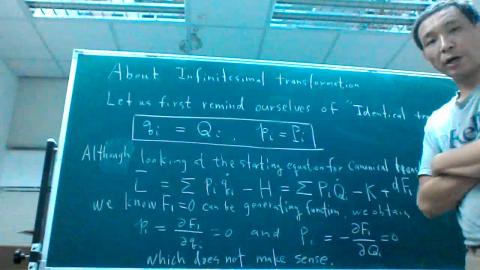 About Infinitesimal transformation
Let us first remind ourselves of "Identical
qi = Qi, pi = Pi
Although looking at the starting equation for Canonical
L = Σ Pi q̇i − H = Σ Pi Q̇i − K + dF1
we know F1=0 can be generating function, we obtain
Pi = ∂F1/∂qi = 0 and Pi = −∂F1/∂Qi = 0
which does not make sense.